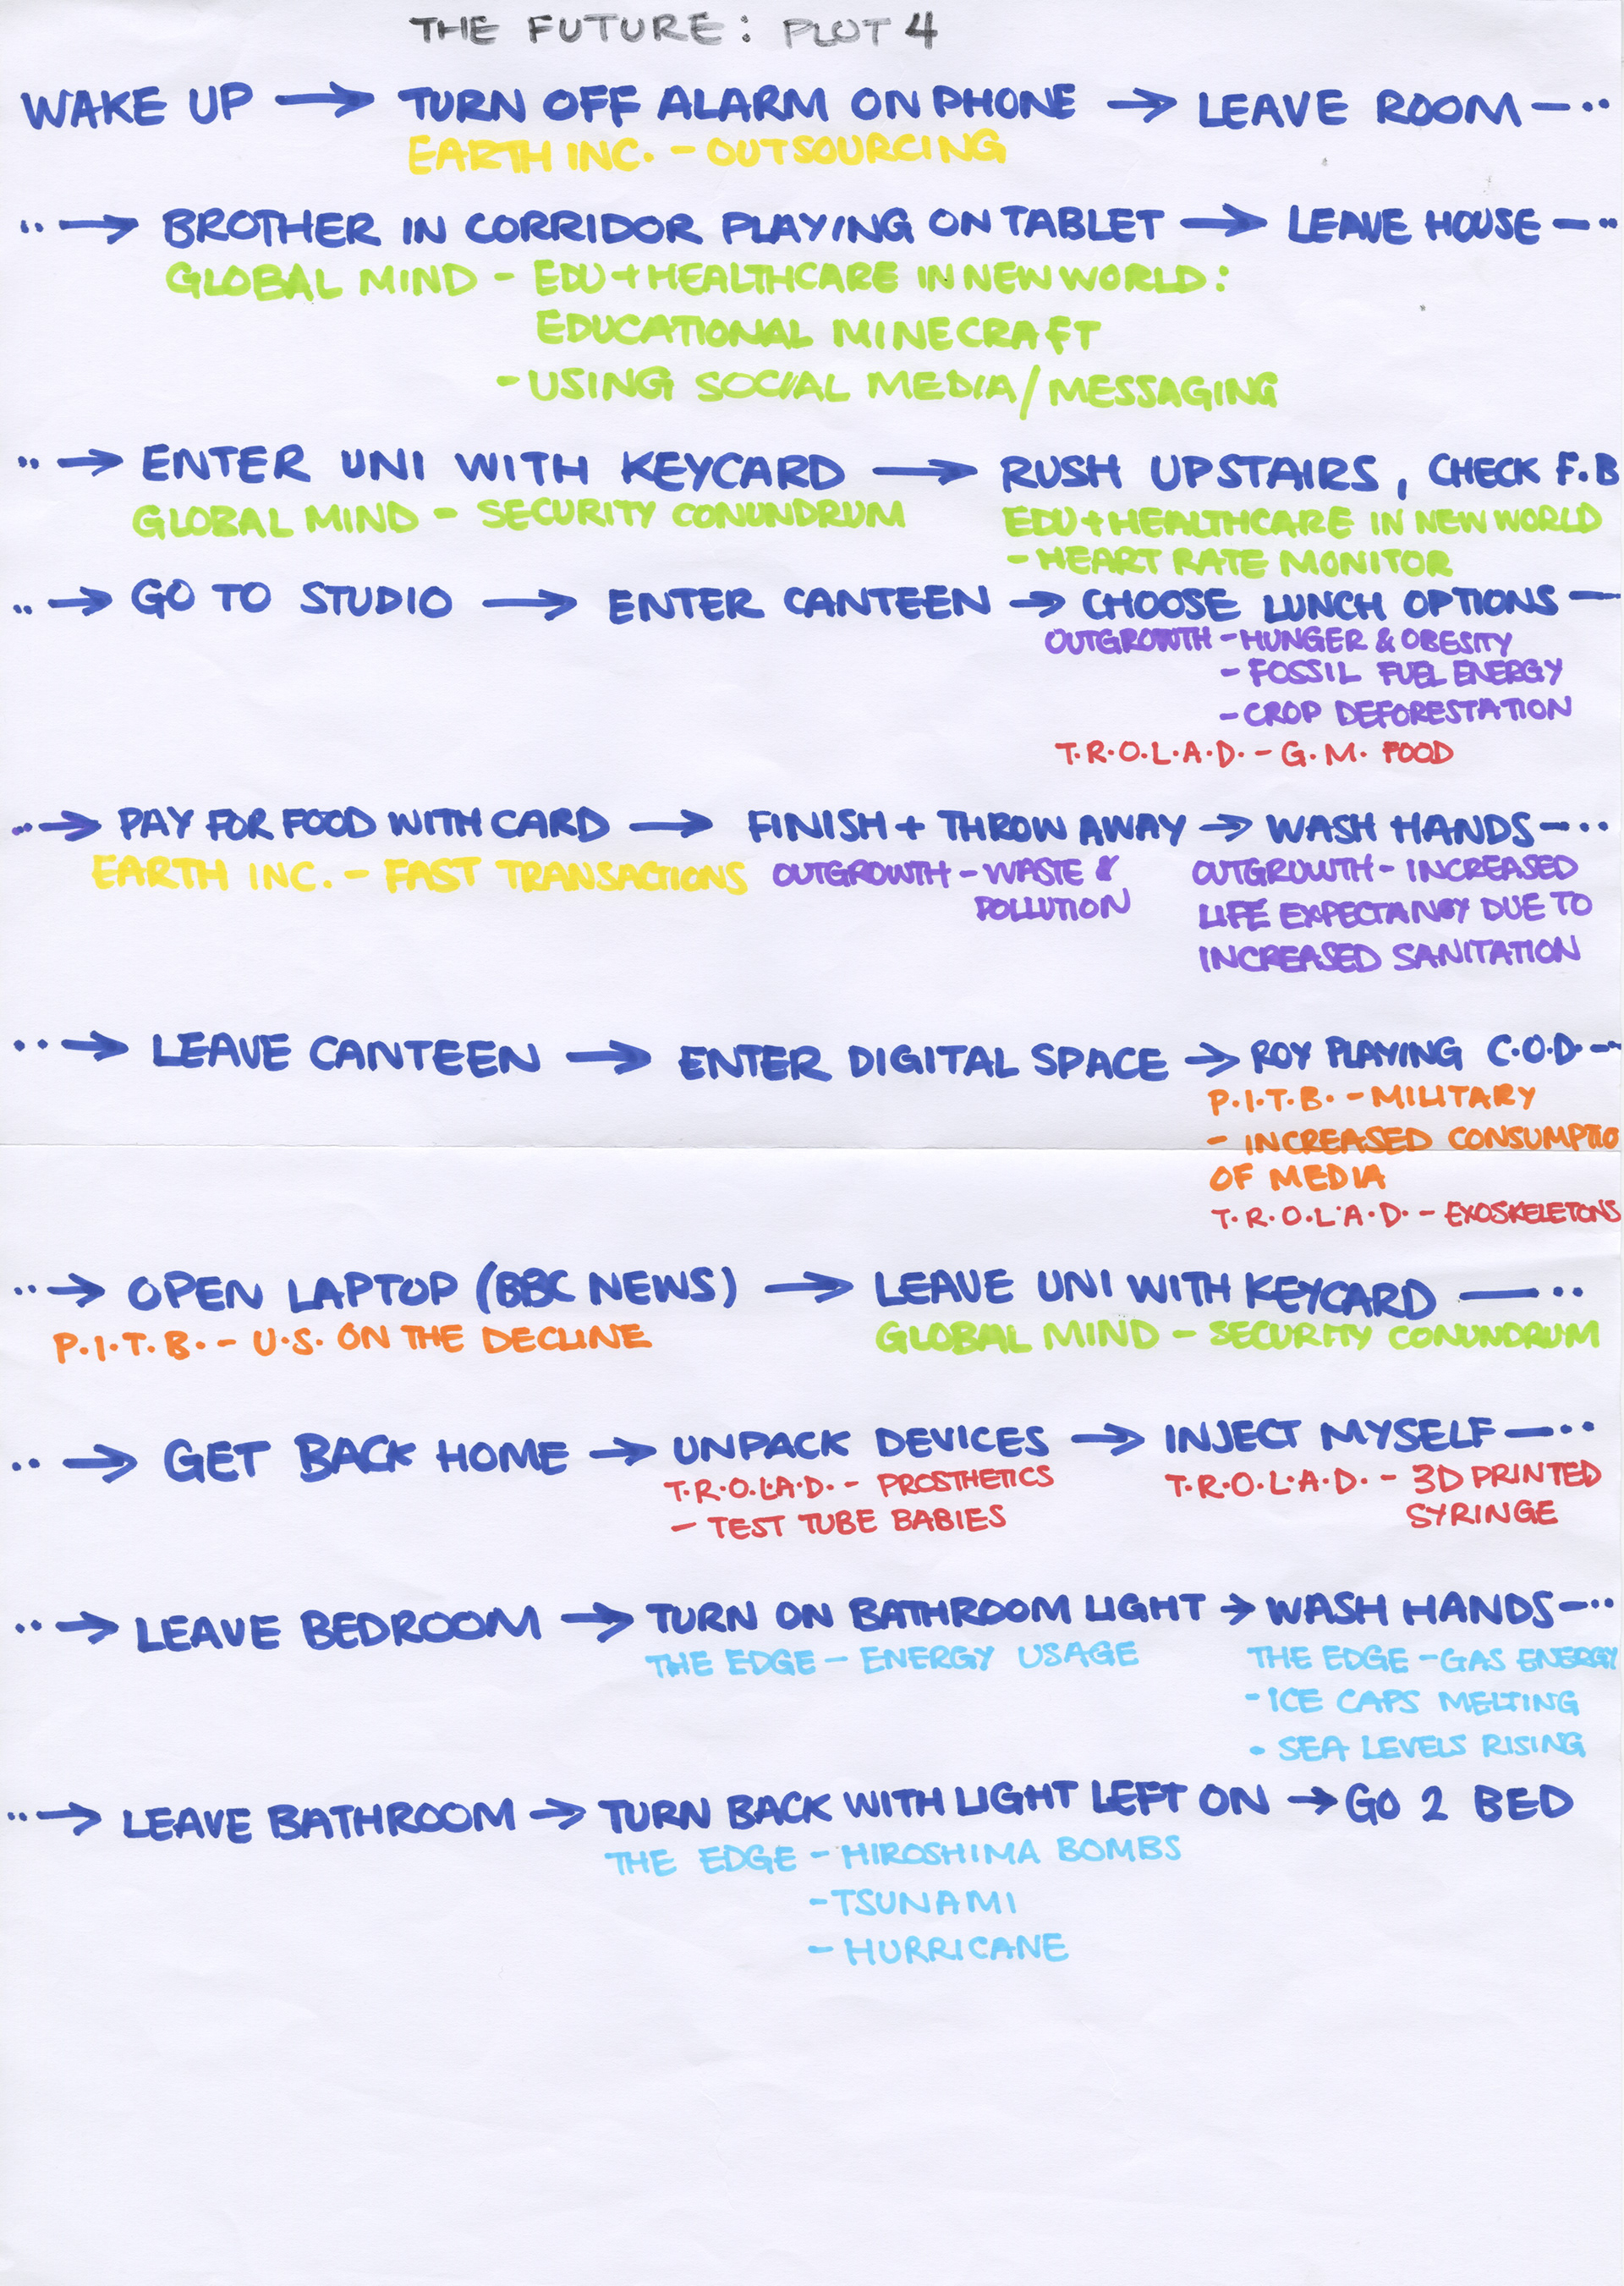 THE FUTURE: PLOT 4
WAKE UP → TURN OFF ALARM ON PHONE → LEAVE ROOM —··
EARTH INC. - OUTSOURCING
··→ BROTHER IN CORRIDOR PLAYING ON TABLET → LEAVE HOUSE —··
GLOBAL MIND - EDU + HEALTHCARE IN NEW WORLD:
EDUCATIONAL MINECRAFT
- USING SOCIAL MEDIA/MESSAGING
··→ ENTER UNI WITH KEYCARD → RUSH UPSTAIRS, CHECK F.B
GLOBAL MIND - SECURITY CONUNDRUM
EDU + HEALTHCARE IN NEW WORLD
- HEART RATE MONITOR
··→ GO TO STUDIO → ENTER CANTEEN → CHOOSE LUNCH OPTIONS —
OUTGROWTH - HUNGER & OBESITY
- FOSSIL FUEL ENERGY
- CROP DEFORESTATION
T.R.O.L.A.D. - G.M. FOOD
··→ PAY FOR FOOD WITH CARD → FINISH + THROW AWAY → WASH HANDS —··
EARTH INC. - FAST TRANSACTIONS
OUTGROWTH - WASTE &
POLLUTION
OUTGROWTH - INCREASED
LIFE EXPECTANCY DUE TO
INCREASED SANITATION
··→ LEAVE CANTEEN → ENTER DIGITAL SPACE → ROY PLAYING C.O.D. —··
P.I.T.B. - MILITARY
- INCREASED CONSUMPTIO
OF MEDIA
T.R.O.L.A.D. - EXOSKELETONS
··→ OPEN LAPTOP (BBC NEWS) → LEAVE UNI WITH KEYCARD —··
P.I.T.B. - U.S. ON THE DECLINE
GLOBAL MIND - SECURITY CONUNDRUM
··→ GET BACK HOME → UNPACK DEVICES → INJECT MYSELF —··
T.R.O.L.A.D. - PROSTHETICS
- TEST TUBE BABIES
T.R.O.L.A.D. - 3D PRINTED
SYRINGE
··→ LEAVE BEDROOM → TURN ON BATHROOM LIGHT → WASH HANDS —··
THE EDGE - ENERGY USAGE
THE EDGE - GAS ENERGY
- ICE CAPS MELTING
- SEA LEVELS RISING
··→ LEAVE BATHROOM → TURN BACK WITH LIGHT LEFT ON → GO 2 BED
THE EDGE - HIROSHIMA BOMBS
- TSUNAMI
- HURRICANE